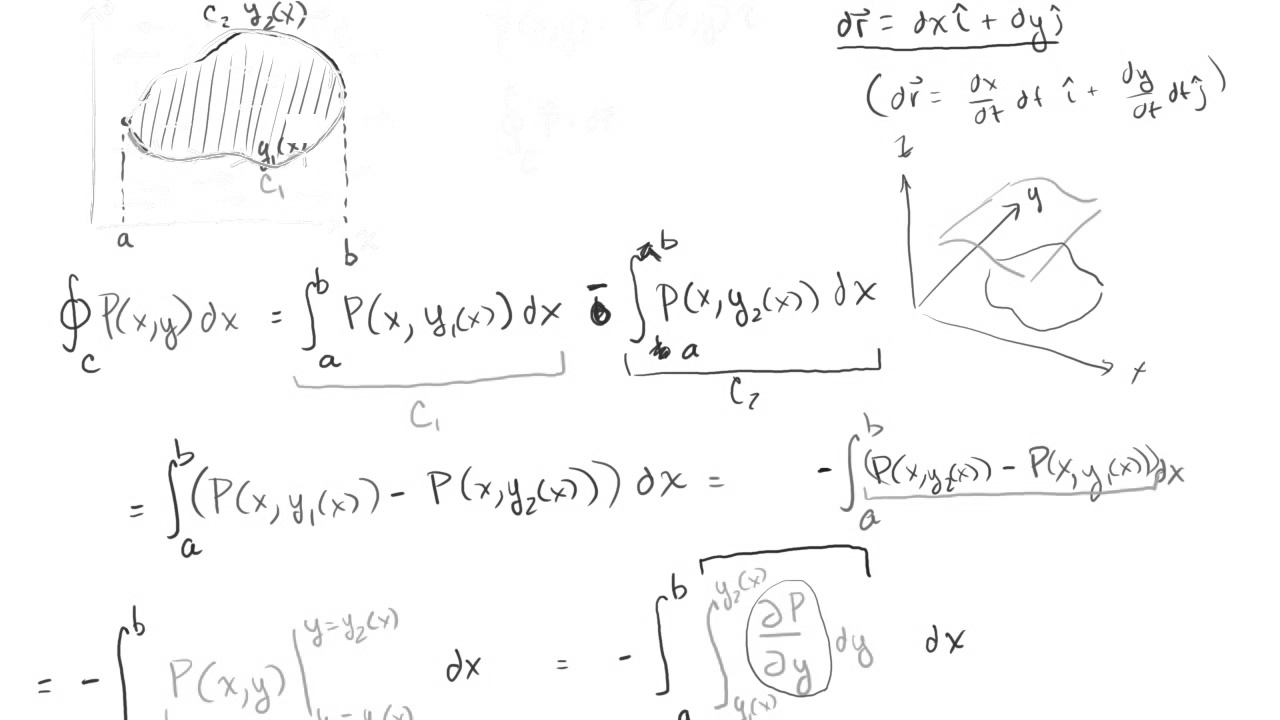 C₂ y₂(x)
y₁(x)
C₁
a
b
dr⃗ = dx î + dy ĵ
(dr⃗ = dx/dt dt î + dy/dt dt ĵ)
z
y
x
∮_C P(x,y) dx = ∫_a^b P(x, y₁(x)) dx - ∫_a^b P(x, y₂(x)) dx
C₁
C₂
= ∫_a^b (P(x, y₁(x)) - P(x, y₂(x))) dx = - ∫_a^b (P(x, y₂(x)) - P(x, y₁(x))) dx
= - ∫^b P(x,y) |^{y=y₂(x)} dx = - ∫_a^b ∫_{y₁(x)}^{y₂(x)} ∂P/∂y dy dx